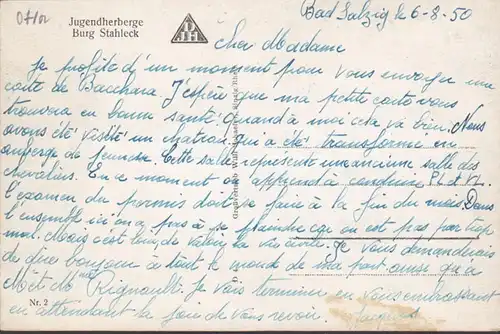 07/02
Jugendherberge
Burg Stahleck
DJH
Bad Salzig le 6-8-50
Cher Madame
Je profite d'un moment pour vous envoyer une
carte de Bacchara. J'espère que ma petite carte vous
trouvera en bonne santé. Quand à moi cela va bien. Nous
avons été visité un chateau qui a été transforme en
auberge de jeunesse. Cette salle représente une ancienne salle des
chevaliers. En ce moment apprend à conduire PL et VL
l'examen du permis doit se faire à la fin du mois. Dans
l'ensemble ici on a pas à se plaindre car on est pas par trop
mal. Mais c'est loin de valoir la vie civile. Je vous demanderais
de dire bonjour à tout le monde de ma part ainsi qu'a
M. et Mme Rignault. Je vais terminer en vous embrassant
en attendant la joie de vous revoir. Jacques
Nr. 2